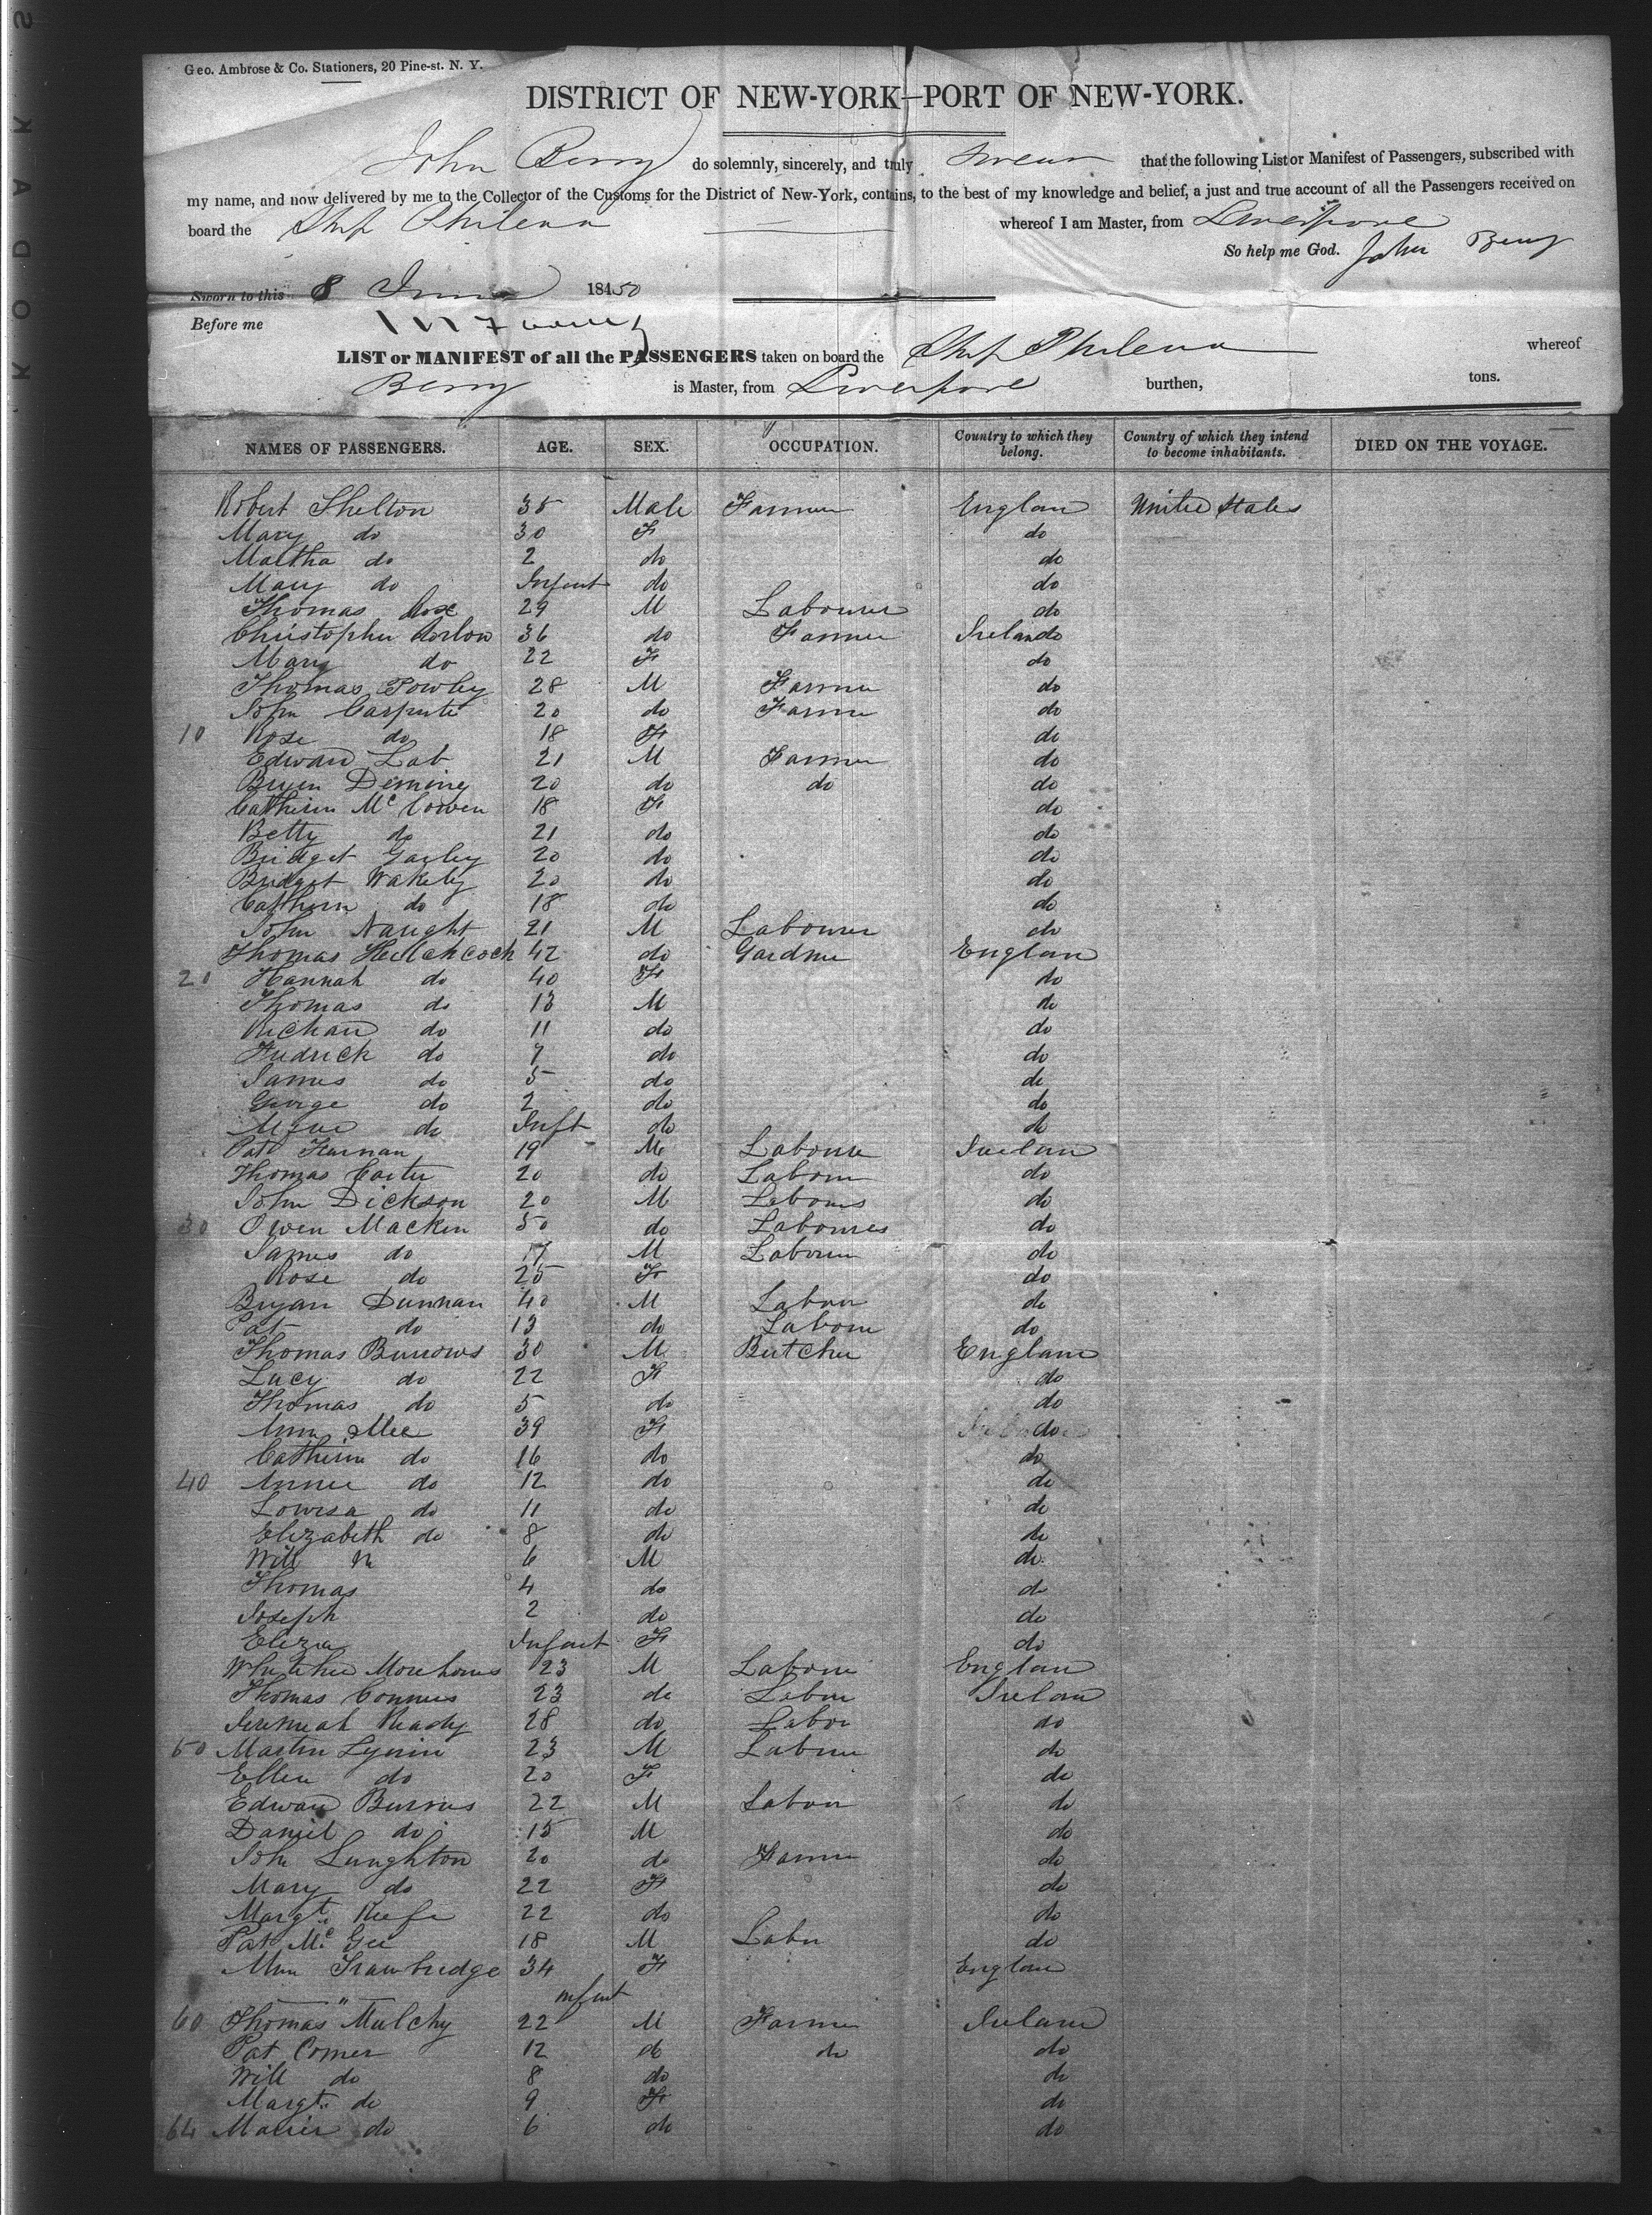 KODAK S
Geo. Ambrose & Co. Stationers, 20 Pine-st. N. Y.
DISTRICT OF NEW-YORK—PORT OF NEW-YORK.
John Berry do solemnly, sincerely, and truly swear that the following List or Manifest of Passengers, subscribed with
my name, and now delivered by me to the Collector of the Customs for the District of New-York, contains, to the best of my knowledge and belief, a just and true account of all the Passengers received on
board the Ship Philena whereof I am Master, from Liverpool
So help me God. John Berry
Sworn to this 8 June 18450
Before me
LIST or MANIFEST of all the PASSENGERS taken on board the Ship Philena whereof
Berry is Master, from Liverpool burthen, tons.
NAMES OF PASSENGERS. AGE. SEX. OCCUPATION. Country to which they belong. Country of which they intend to become inhabitants. DIED ON THE VOYAGE.
Robert Shelton 35 Male Farmer England United States
Mary do 30 F do
Martha do 2 do do
Mary do Infant do do
Thomas 29 M Labourer do
Christopher 36 do Farmer Ireland
Mary do 22 F do
Thomas Powley 28 M Farmer do
John Carpenter 20 do Farmer do
10 Rose do 18 F do
Edward Lab 21 M Farmer do
Bryen Deming 20 do do do
Catherin Mc Cowen 18 F do
Betty do 21 do do
Bridget Garley 20 do do
Bridget Wakely 20 do do
Cathern do 18 do do
John Naught 21 M Labourer do
Thomas 42 do Gardner England
20 Hannah do 40 F do
Thomas do 13 M do
Richard do 11 do do
Fredrick do 7 do do
James do 5 do do
George do 2 do do
do Inft do do
Pat 19 M Labourer Ireland
Thomas Carter 20 do Labourer do
John Dickson 20 M Labourer do
30 Owen Macken 50 do Labourer do
James do 17 M Labourer do
Rose do 25 F do
Bryan Dunnan 40 M Labour do
Pat do 13 do Labour do
Thomas Burrows 30 M Butcher England
Lucy do 22 F do
Thomas do 5 do do
Ann Mee 39 F do
Catherin do 16 do do
40 Annie do 12 do do
Lowisa do 11 do do
Elizabeth do 8 do do
Will m 6 M do
Thomas 4 do do
Joseph 2 do do
Eliza Infant F do
23 M Labour England
Thomas Conners 23 do Labour Ireland
Jeremiah Ready 28 do Labor do
50 Martin 23 M Labour do
Ellen do 20 F do
Edward Burns 22 M Labour do
Daniel do 15 M do
John Lunghton 20 do Farmer do
Mary do 22 F do
Margt. Keefe 22 do do
Pat Mc Gee 18 M Labr do
Trawbridge 34 F England
" infant
60 Thomas Mulchy 22 M Farmer Ireland
Pat Comer 12 do do do
Will do 8 do do
Margt. do 9 F do
64 Marier do 6 do do